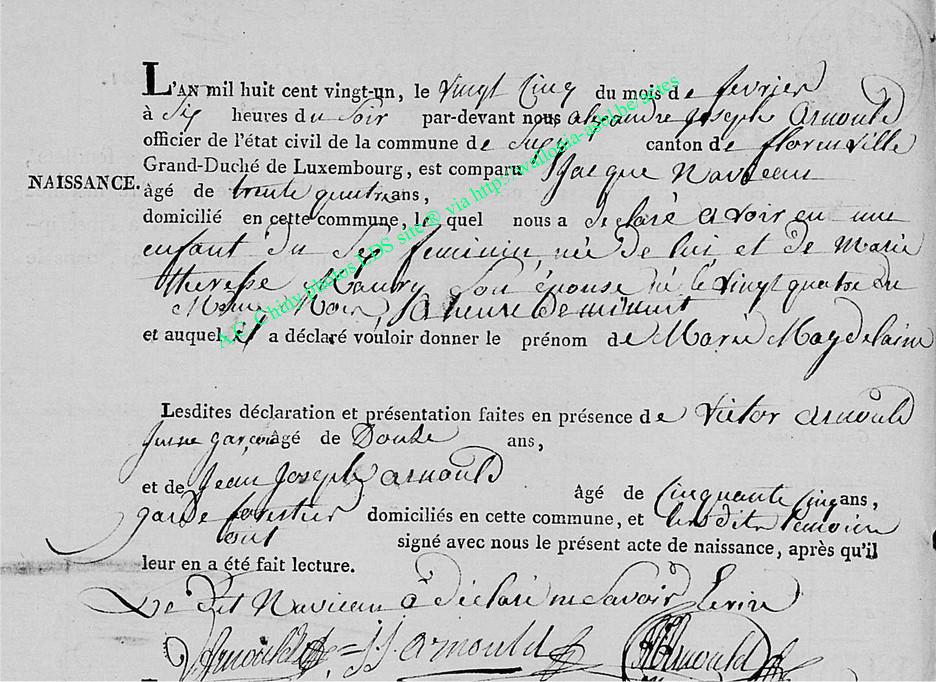 L'AN mil huit cent vingt-un, le vingt cinq du mois de fevrier
à six heures du soir par-devant nous alexandre joseph arnould
officier de l'état civil de la commune de canton de florenville
Grand-Duché de Luxembourg, est comparu Jacque Navieau
NAISSANCE. âgé de trente quatre ans,
domicilié en cette commune, le quel nous a declaré avoir eu une
enfant du sex feminin, née de lui et de Marie
Theresse Maubry son épouse né le vingt quatre du
Meme Mois, a heure de minuit
et auquel il a déclaré vouloir donner le prénom de Marie Magdelaine
Lesdites déclaration et présentation faites en présence de victor arnould
jeune garçon âgé de Douke ans,
et de Jean Joseph arnould
âgé de Cinquante Cinq ans,
garde forestier domiciliés en cette commune, et lesdits temoin
ont signé avec nous le présent acte de naissance, après qu'il
leur en a été fait lecture.
Le dit Navieau a déclaré ne savoir
Arnould J J arnould Arnould
A.F. Chiny photos LDS site ® via http://wallonia-asbl.be/actes